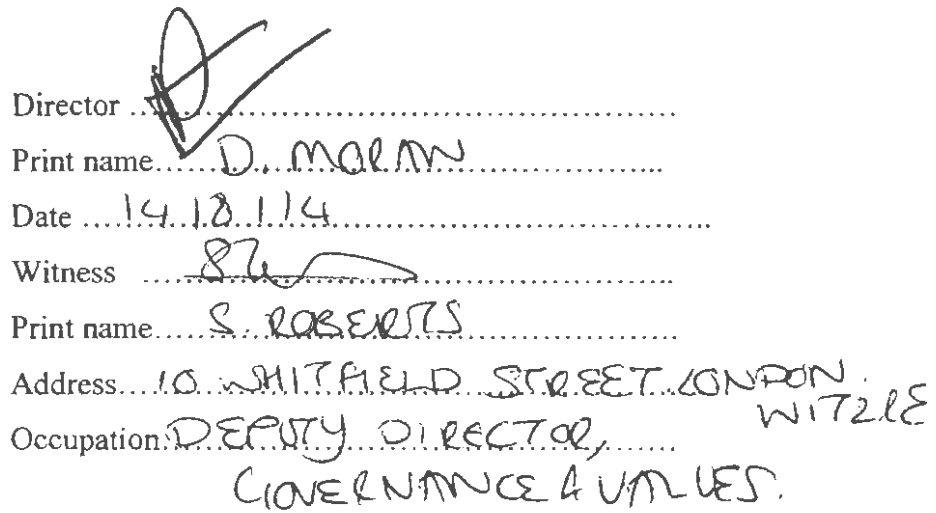 Director ..........
Print name..... D. MORAN
Date .... 14.18.114
Witness ..........
Print name..... S. ROBERTS
Address.... 10 WHITFIELD STREET LONDON.
W1T2RE
Occupation: DEPUTY DIRECTOR,
GOVERNANCE & VALUES.